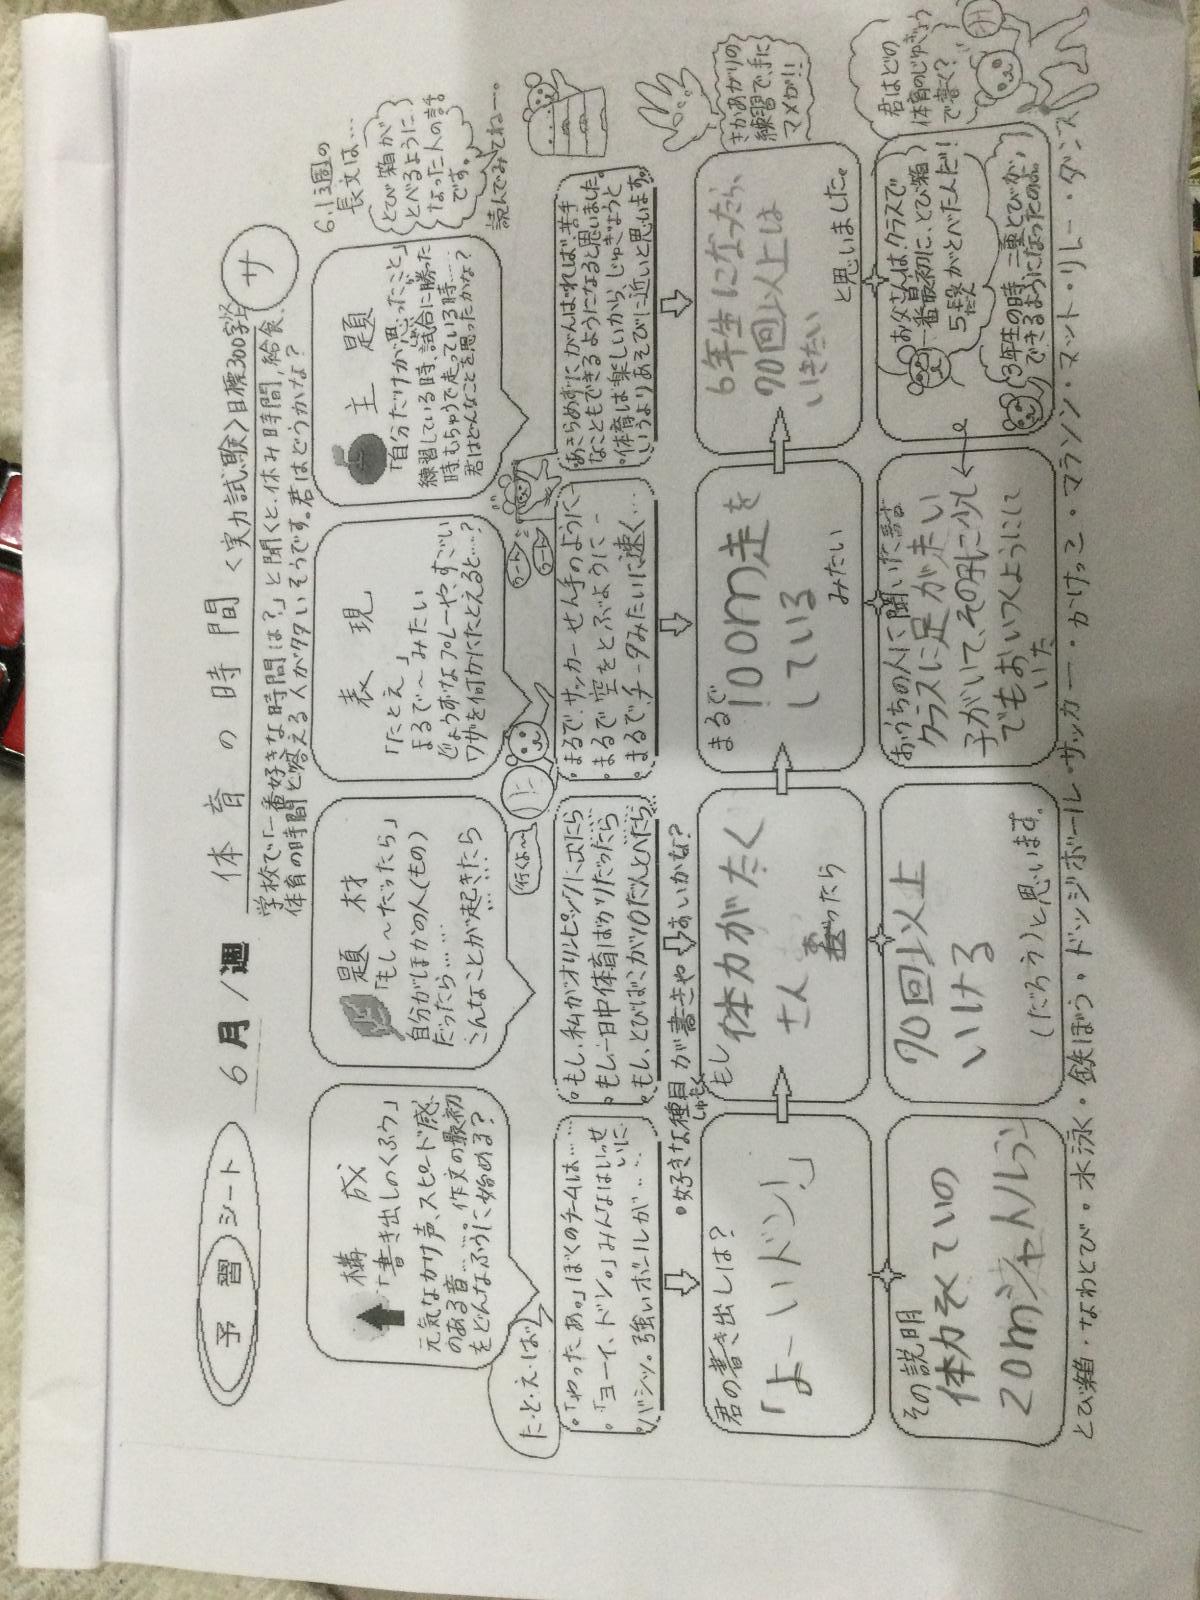 予習シート
6月1週
体育の時間
<実力試験>目標300字
サ
学校で「一番好きな時間は?」と聞くと、休み時間、給食、
体育の時間と答える人が多いそうです。君はどうかな?
6.1週の
長文は…
とび箱が
とべるように
なった人の話
です。
読んでみてねー。
構成
「書き出しのくふう」
元気なかけ声、スピード感
のある音……。作文の最初
をどんなふうに始める?
題材
「もし〜だったら」
自分がほかの人(もの)
だったら……
こんなことが起きたら
……
表現
「たとえ」
まるで〜みたい
じょうずなプレーや、すごい
ワザを何かにたとえると…?
主題
「自分だけが思ったこと」
練習している時、試合に勝った
時、もちゅうで走っている時……
君はどんなことを思ったかな?
た・と・え・ば
行くよ〜
。「やったあ。」ぼくのチームは……
。「ヨーイ、ドン。」みんなはいっせいに
。バシッ。強いボールが……
。もし、私がオリンピックに出たら
。もし、一日中体育ばかりだったら
。もし、とびばこが10だんとべたら
。まるで、サッカーせん手のように―
。まるで空をとぶように―
。まるで、チータみたいに速く…
。あきらめずにがんばれば、苦手
なこともできるようになると思いました。
。体育は楽しいから、じゅぎょうと
いうよりあそびに近いと思います。
。好きな種目が書きやすいかな?
しゅもく
さかあがりの
練習で、手に
マメが!!
君の書き出しは?
「よーいドン!」
もし
体力がたく
さん
あったら
まるで
100m走を
している
みたい
6年生になったら、
90回以上は
いきたい
と思いました。
君はどの
体育のじゅぎょう
で書く?
その説明
体力そくていの
20mシャトルラン
90回以上
いける
(だろう)と思います。
おうちの人に聞いた話
クラスに足が速い
子がいて、その子に少し
でもおいつくようにして
いた
お父さんは、クラスで
一番最初に、とび箱
5段がとべたんだ!
3年生の時、二重とびが、
できるようになったのよ。
とび箱・なわとび・水泳・鉄ぼう・ドッジボール・サッカー・かけっこ・マラソン・マット・リレー・ダンス